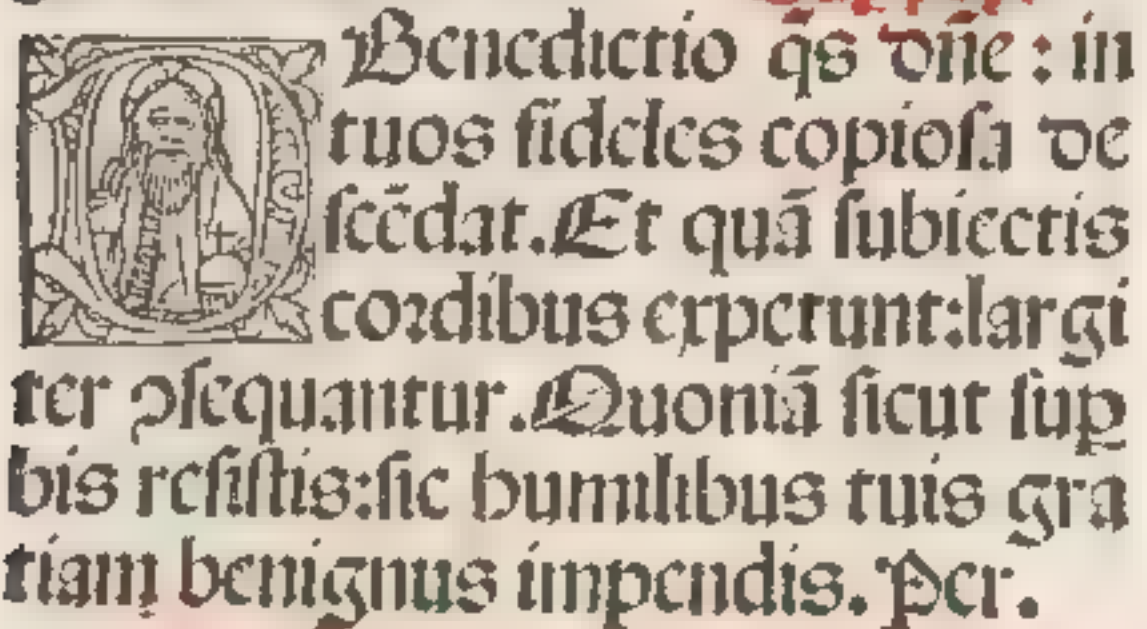 Benedictio q̃s dñe : in
tuos fideles copiosa de
scẽdat. Et quã subiectis
cordibus expetunt: largi
ter ꝯsequantur. Quoniã sicut sup̱
bis resistis: sic humilibus tuis gra
tiam benignus impendis. Per.